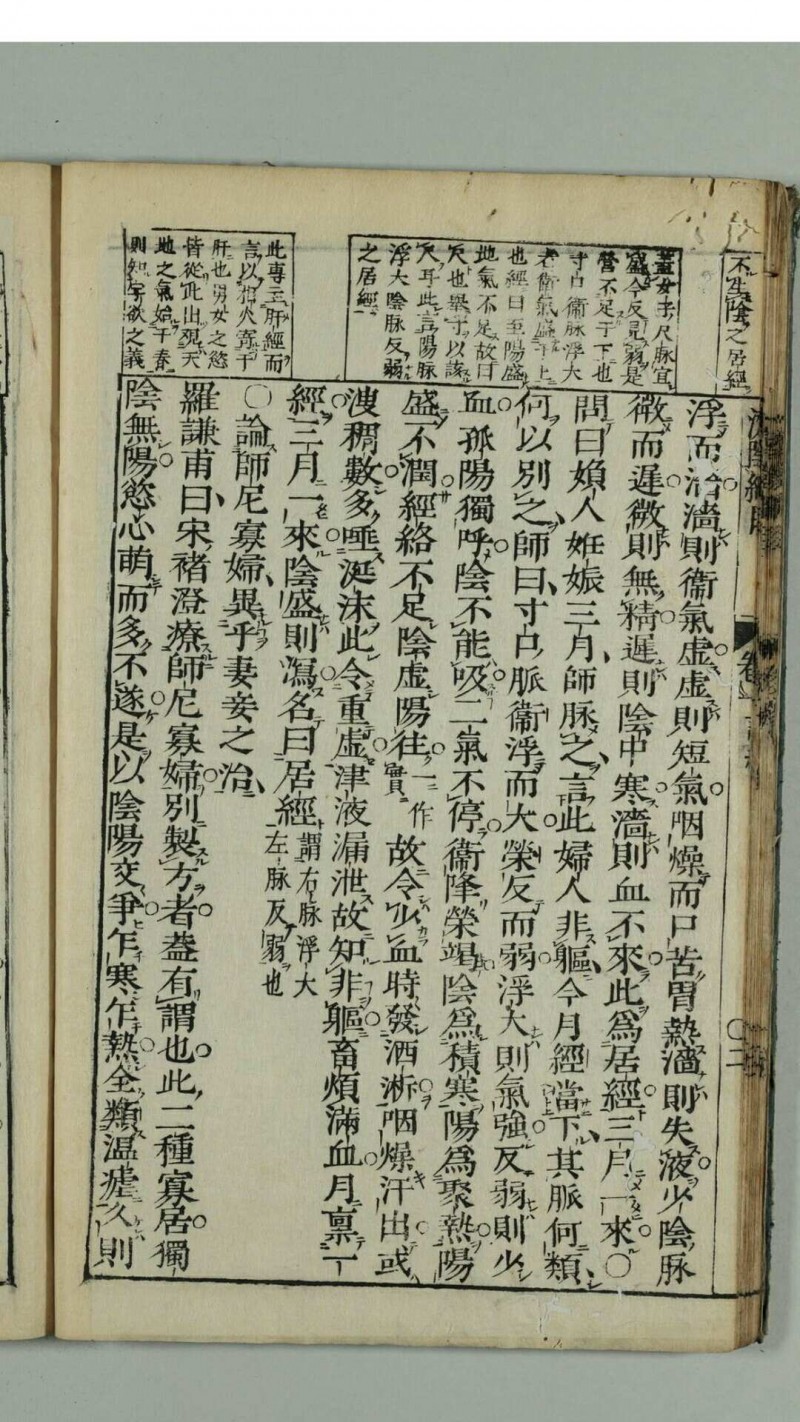 不生陰之居經
蓋女子尺脉宜
盛今反見弱是
營不足于下也
寸口衞脉浮大
者衞氣盛于上
也經曰至陽盛
地氣不足故曰
尺也舉寸以該
尺耳此言陽脉
浮大陰脉反弱
之居經
此專主肝經而
言以相火寄于
肝也男女之慾
皆從此出現天
地之氣始于春
則知
欲之義
浮而濇濇則衞氣虚虚則短氣咽燥而口苦胃熱濇則失液少陰脉
微而遲微則無精遲則陰中寒濇則血不來此爲居經三月一來〇
問曰婦人姙娠三月師脉之言此婦人非軀今月經當下其脉何類
何以別之師曰寸口脈衞浮而大榮反而弱浮大則氣強反弱則少
血孤陽獨呼陰不能吸二氣不停衞降榮竭陰爲積寒陽爲聚熱陽
盛不潤經絡不足陰虚陽往一作實故令少血時發洒淅咽燥汗出或
溲稠數多唾涎沫此令重虚津液漏泄故知非軀畜煩滿血月禀一
經三月一來陰盛則瀉名曰居經謂右脉浮大左脉反弱也
〇論師尼寡婦異乎妻妾之治
羅謙甫曰宋褚澄療師尼寡婦別製方者蓋有謂也此二種寡居獨
陰無陽慾心萌而多不遂是以陰陽交爭乍寒乍熱全類温瘧久則